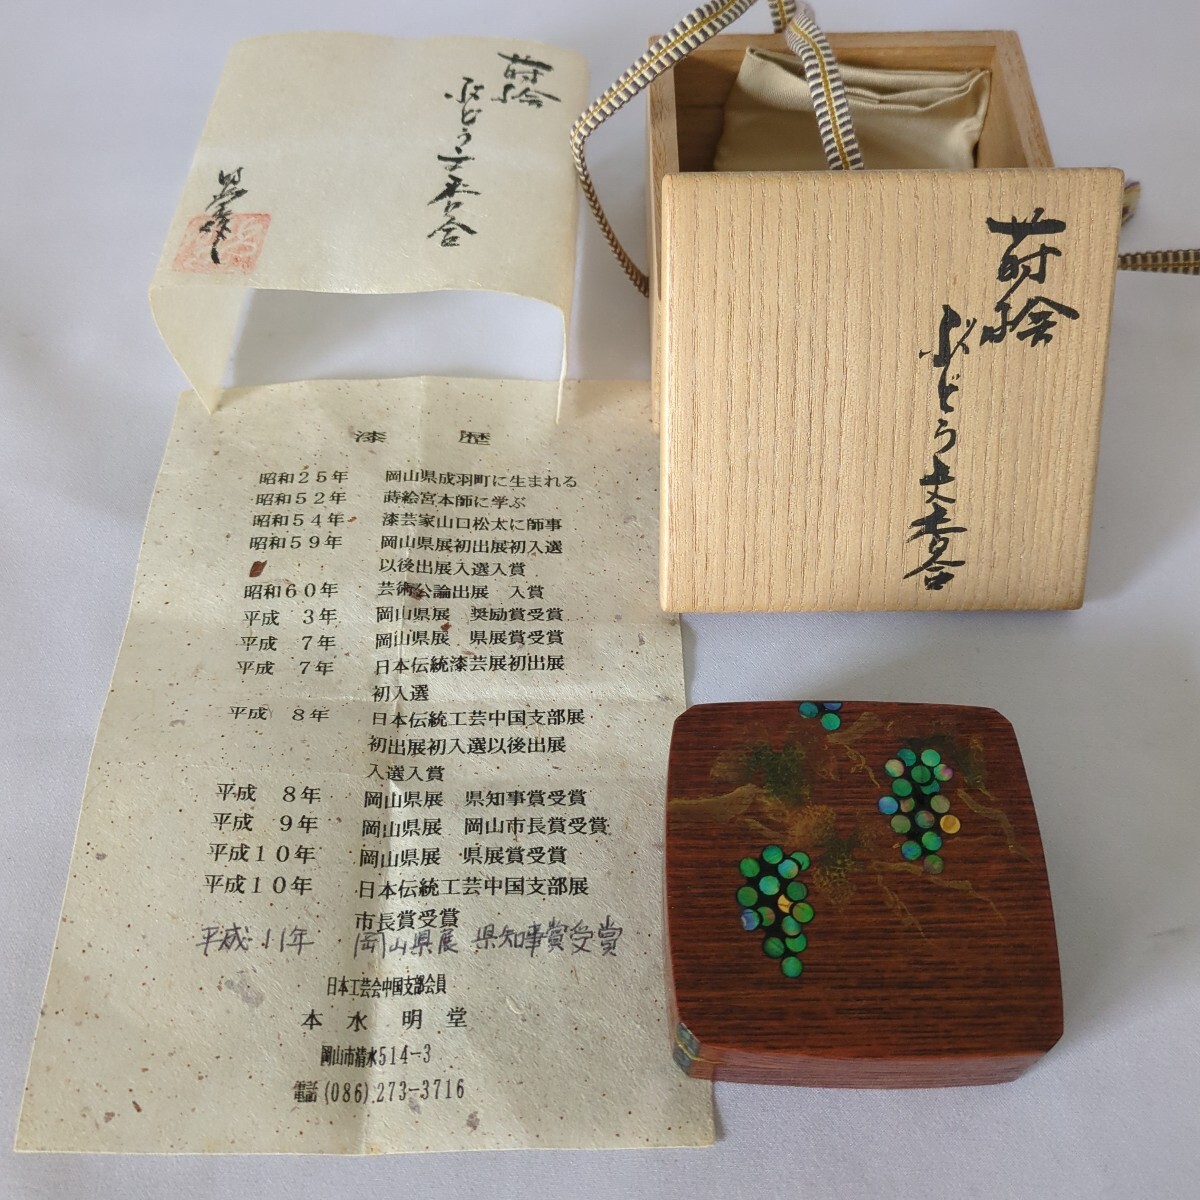 蒔絵
ぶどう文香合
蒔絵
ぶどう文香合
漆　歴
昭和25年　岡山県成羽町に生まれる
昭和52年　蒔絵宮本師に学ぶ
昭和54年　漆芸家山口松太に師事
昭和59年　岡山県展初出展初入選
以後出展入選入賞
昭和60年　芸術公論出展　入賞
平成　3年　岡山県展　奨励賞受賞
平成　7年　岡山県展　県展賞受賞
平成　7年　日本伝統漆芸展初出展
初入選
平成　8年　日本伝統工芸中国支部展
初出展初入選以後出展
入選入賞
平成　8年　岡山県展　県知事賞受賞
平成　9年　岡山県展　岡山市長賞受賞
平成10年　岡山県展　県展賞受賞
平成10年　日本伝統工芸中国支部展
市長賞受賞
平成11年　岡山県展　県知事賞受賞
日本工芸会中国支部会員
本水明堂
岡山市清水514-3
電話(086).273-3716